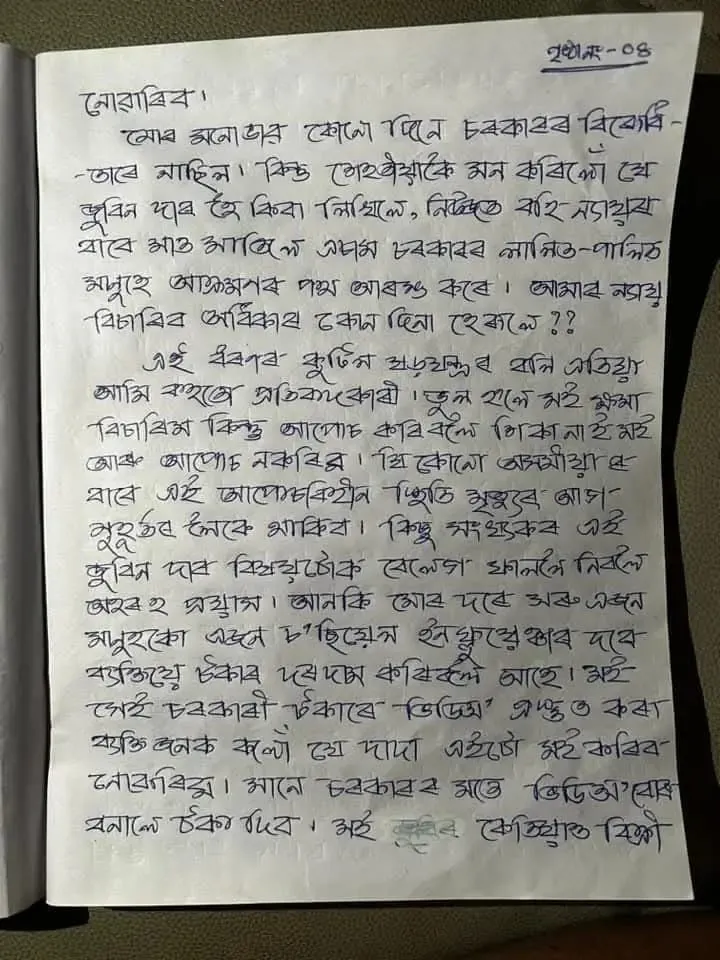 পৃষ্ঠা নং - ০৪
নোৱাৰিব।
মোৰ মনোভাৱ কোনো দিনে চৰকাৰৰ বিৰোধি-
-তাৰে নাছিল। কিন্তু শেহতীয়াকৈ মন কৰিলোঁ যে
জুবিন দাৰ হৈ কিবা লিখিলে, নিউজত কহি ন্যায়ৰ
বাবে মাত মাতিলে এচাম চৰকাৰৰ লালিত-পালিত
মানুহে আক্ৰমণৰ পথ আৰম্ভ কৰে। আমাৰ ন্যায়
বিচাৰিব অধিকাৰ কোন দিনা হেৰুৱালে??
এই ধৰণৰ কুটিল ষড়যন্ত্ৰৰ বলি এতিয়া
আমি বহুতো প্ৰতিবাদকাৰী। ভুল হ'লে মই ক্ষমা
বিচাৰিম কিন্তু আপোচ কৰিবলৈ শিকা নাই মই
আৰু আপোচ নকৰিম। যি কোনো অসমীয়াৰ
বাবে এই আপোচবিহীন স্থিতি মৃত্যুৰ আগ
মুহূৰ্তলৈকে থাকিব। কিছু সংখ্যকৰ এই
জুবিন দাৰ বিষয়টোক বেলেগ ফাললৈ নিবলৈ
অহৰহ প্ৰয়াস। আনকি মোৰ দৰে সৰু এজন
মানুহকো এজন চ'ছিয়েল ইনফ্লুৱেঞ্চাৰ দৰে
ব্যক্তিয়ে টকাৰ দৰদাম কৰিবলৈ আহে। মই
সেই চৰকাৰী টকাৰে ভিডিঅ' প্ৰস্তুত কৰা
ব্যক্তিজনক ক'লোঁ যে দাদা এইটো মই কৰিব
নোৱাৰিম। মানে চৰকাৰৰ মতে ভিডিঅ'বোৰ
বনালে টকা দিব। মই কেতিয়াও বিক্ৰী